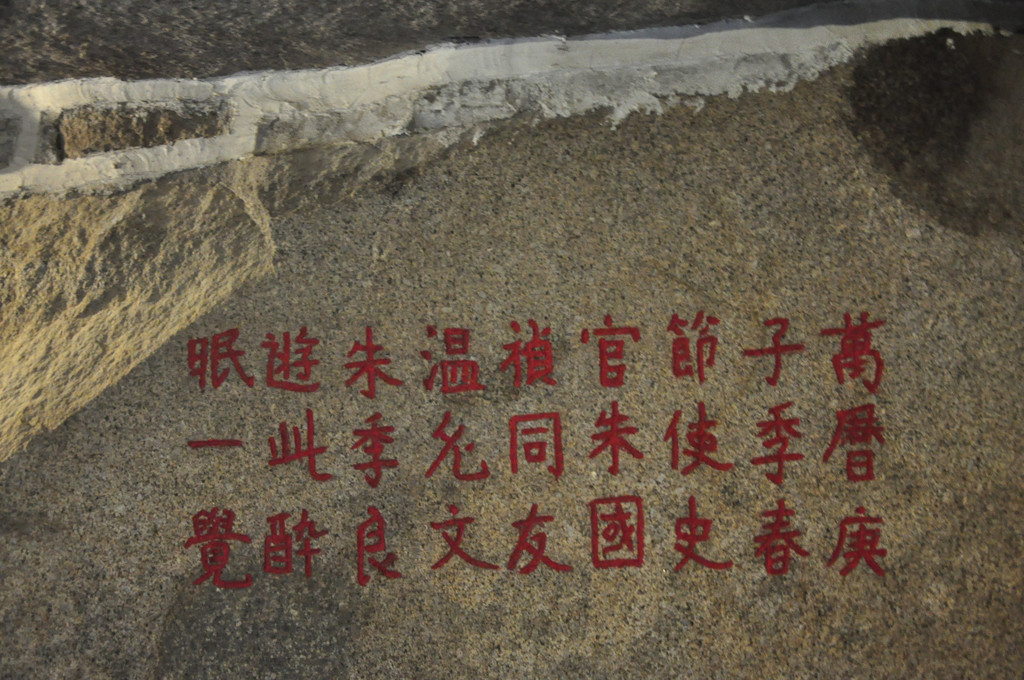 萬曆庚
子季春
節使史
官朱國
禎同友
温允文
朱季良
遊此醉
眠一覺